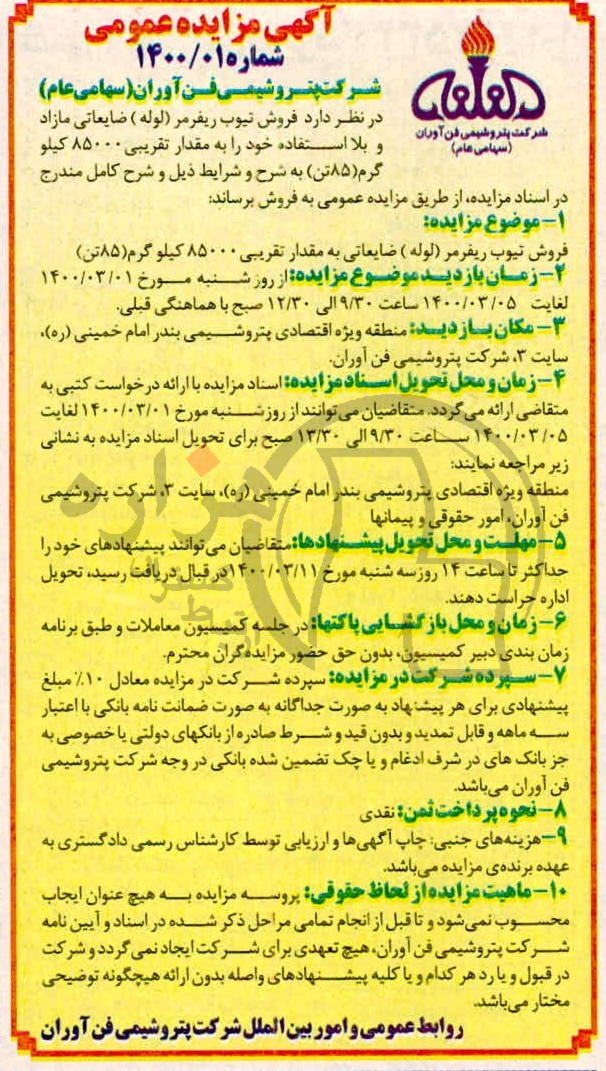 آگهی مزایده عمومی
شماره ۱۴۰۰/۰۱
شرکت پتروشیمی فن آوران (سهامی عام)
شرکت پتروشیمی فن آوران
(سهامی عام)
در نظر دارد فروش تیوب ریفرمر (لوله) ضایعاتی مازاد
و بلا استفاده خود را به مقدار تقریبی ۸۵۰۰۰ کیلو
گرم (۸۵تن) به شرح و شرایط ذیل و شرح کامل مندرج
در اسناد مزایده، از طریق مزایده عمومی به فروش برساند:
۱- موضوع مزایده:
فروش تیوب ریفرمر (لوله) ضایعاتی به مقدار تقریبی ۸۵۰۰۰ کیلو گرم (۸۵تن)
۲- زمان بازدید موضوع مزایده: از روز شنبه مورخ ۱۴۰۰/۰۳/۰۱
لغایت ۱۴۰۰/۰۳/۰۵ ساعت ۹/۳۰ الی ۱۲/۳۰ صبح با هماهنگی قبلی.
۳- مکان بازدید: منطقه ویژه اقتصادی پتروشیمی بندر امام خمینی (ره)،
سایت ۳، شرکت پتروشیمی فن آوران.
۴- زمان و محل تحویل اسناد مزایده: اسناد مزایده با ارائه درخواست کتبی به
متقاضی ارائه می گردد. متقاضیان می توانند از روز شنبه مورخ ۱۴۰۰/۰۳/۰۱ لغایت
۱۴۰۰/۰۳/۰۵ ساعت ۹/۳۰ الی ۱۳/۳۰ صبح برای تحویل اسناد مزایده به نشانی
زیر مراجعه نمایند:
منطقه ویژه اقتصادی پتروشیمی بندر امام خمینی (ره)، سایت ۳، شرکت پتروشیمی
فن آوران، امور حقوقی و پیمانها
۵- مهلت و محل تحویل پیشنهادها: متقاضیان می توانند پیشنهادهای خود را
حداکثر تا ساعت ۱۴ روز سه شنبه مورخ ۱۴۰۰/۰۳/۱۱ در قبال دریافت رسید، تحویل
اداره حراست دهند.
۶- زمان و محل بازگشایی پاکتها: در جلسه کمیسیون معاملات و طبق برنامه
زمان بندی دبیر کمیسیون، بدون حق حضور مزایده گران محترم.
۷- سپرده شرکت در مزایده: سپرده شرکت در مزایده معادل ۱۰٪ مبلغ
پیشنهادی برای هر پیشنهاد به صورت جداگانه به صورت ضمانت نامه بانکی با اعتبار
سه ماهه و قابل تمدید و بدون قید و شرط صادره از بانکهای دولتی یا خصوصی به
جز بانک های در شرف ادغام و یا چک تضمین شده بانکی در وجه شرکت پتروشیمی
فن آوران می باشد.
۸- نحوه پرداخت ثمن: نقدی
۹- هزینه های جنبی: چاپ آگهی ها و ارزیابی توسط کارشناس رسمی دادگستری به
عهده برنده ی مزایده می باشد.
۱۰- ماهیت مزایده از لحاظ حقوقی: پروسه مزایده به هیچ عنوان ایجاب
محسوب نمی شود و تا قبل از انجام تمامی مراحل ذکر شده در اسناد و آیین نامه
شرکت پتروشیمی فن آوران، هیچ تعهدی برای شرکت ایجاد نمی گردد و شرکت
در قبول و یا رد هر کدام و یا کلیه پیشنهادهای واصله بدون ارائه هیچگونه توضیحی
مختار می باشد.
روابط عمومی و امور بین الملل شرکت پتروشیمی فن آوران
هزاره